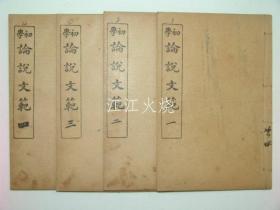 初學論說文範 一
初學論說文範 二
初學論說文範 三
初學論說文範 四
江江火烧